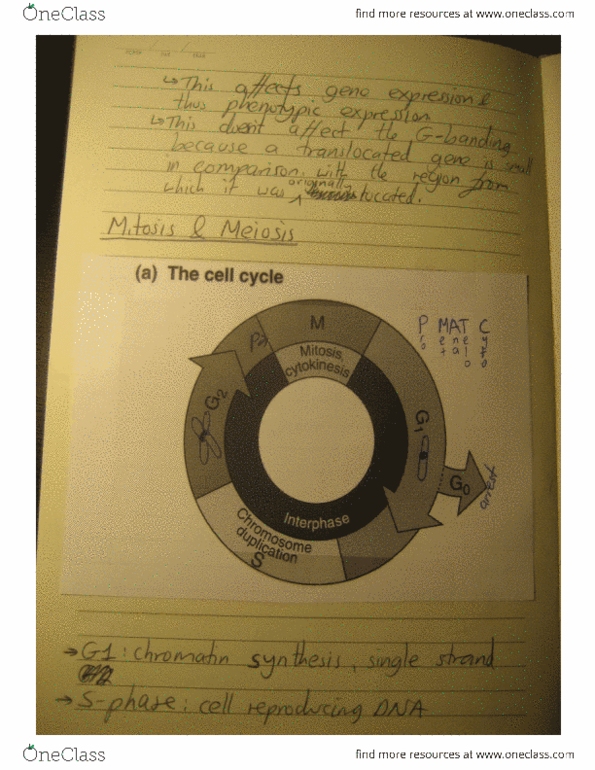 OneClass
find more resources at www.oneclass.com
↳This affects gene expression &
thus phenotypic expression
↳This doesn't affect the G-banding
because a translocated gene is small
in comparison with the region from
which it was originally located.
Mitosis & Meiosis
(a) The cell cycle
M
Mitosis,
cytokinesis
P MAT C
ro
eta
na
elo
yto
G2
G1
G0
arrest
Interphase
Chromosome
duplication
S
→ G1: chromatin synthesis, single strand
→ S-phase: cell reproducing DNA
OneClass
find more resources at www.oneclass.com